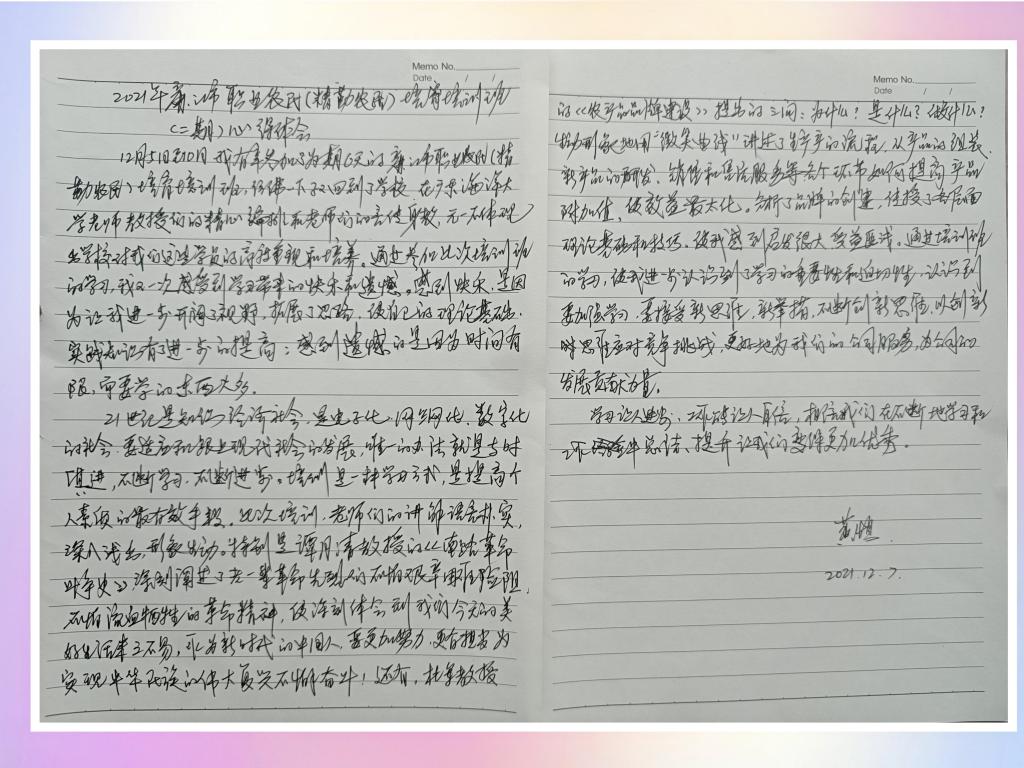 Memo No.
Date / /
2021年廉江市职业农民(精勤农民)培育培训班
(二期)心得体会
12月5日至10日我有幸参加了为期6天的廉江市职业农民(精
勤农民)培育培训班,仿佛一下子又回到了学校,在广东海洋大
学老师教授们的精心编排和老师们的言传身教,无一不体现
出学校对我们这些学员的高度重视和培养。通过参加此次培训班
的学习,我又一次感觉到学习带来的快乐和遗憾。感到快乐,是因
为让我进一步开阔了视野,扩展了思路,使自己的理论基础,
实践知识有了进一步的提高;感到遗憾的是因为时间有
限,需要学的东西太多。
21世纪是知识经济社会,是电子化、网络化、数字化
的社会,要适应和跟上现代社会的发展,唯一的办法就是与时
俱进,不断学习,不断进步。培训是一种学习方式,是提高个
人素质的最有效手段。此次培训,老师们的讲解语言朴实,
深入浅出,形象生动。特别是谭月清教授的《南路革命
斗争史》深刻阐述了老一辈革命先烈们不怕艰辛困难险阻,
不怕流血牺牲的革命精神,使深刻体会到我们今天的美
好生活来之不易,引以为新时代的中国人,要更加努力,更有担当为
实现中华民族的伟大复兴不懈奋斗!还有,杜掌教授
Memo No.
Date / /
的《农产品品牌建设》提出的三问:为什么?是什么?做什么?
特别形象地用"微笑曲线"讲述了生产的流程,从产品的组装、
新产品的研发、销售和售后服务等各个环节如何提高产品
附加值,使效益最大化。分析了品牌的创建,传授了各层面
理论基础和技巧,使我感到启发很大,受益匪浅。通过培训班
的学习,使我进一步认识到了学习的重要性和迫切性,认识到
要加强学习,要接受新思维,新举措,不断创新思维,以创新
的思维应对竞争挑战,更好地为我们的公司服务,为公司的
发展贡献力量。
学习让人进步,工作让人自信,相信我们在不断地学习和
工作中总结、提升让我们变得更加优秀。
2021.12.7.